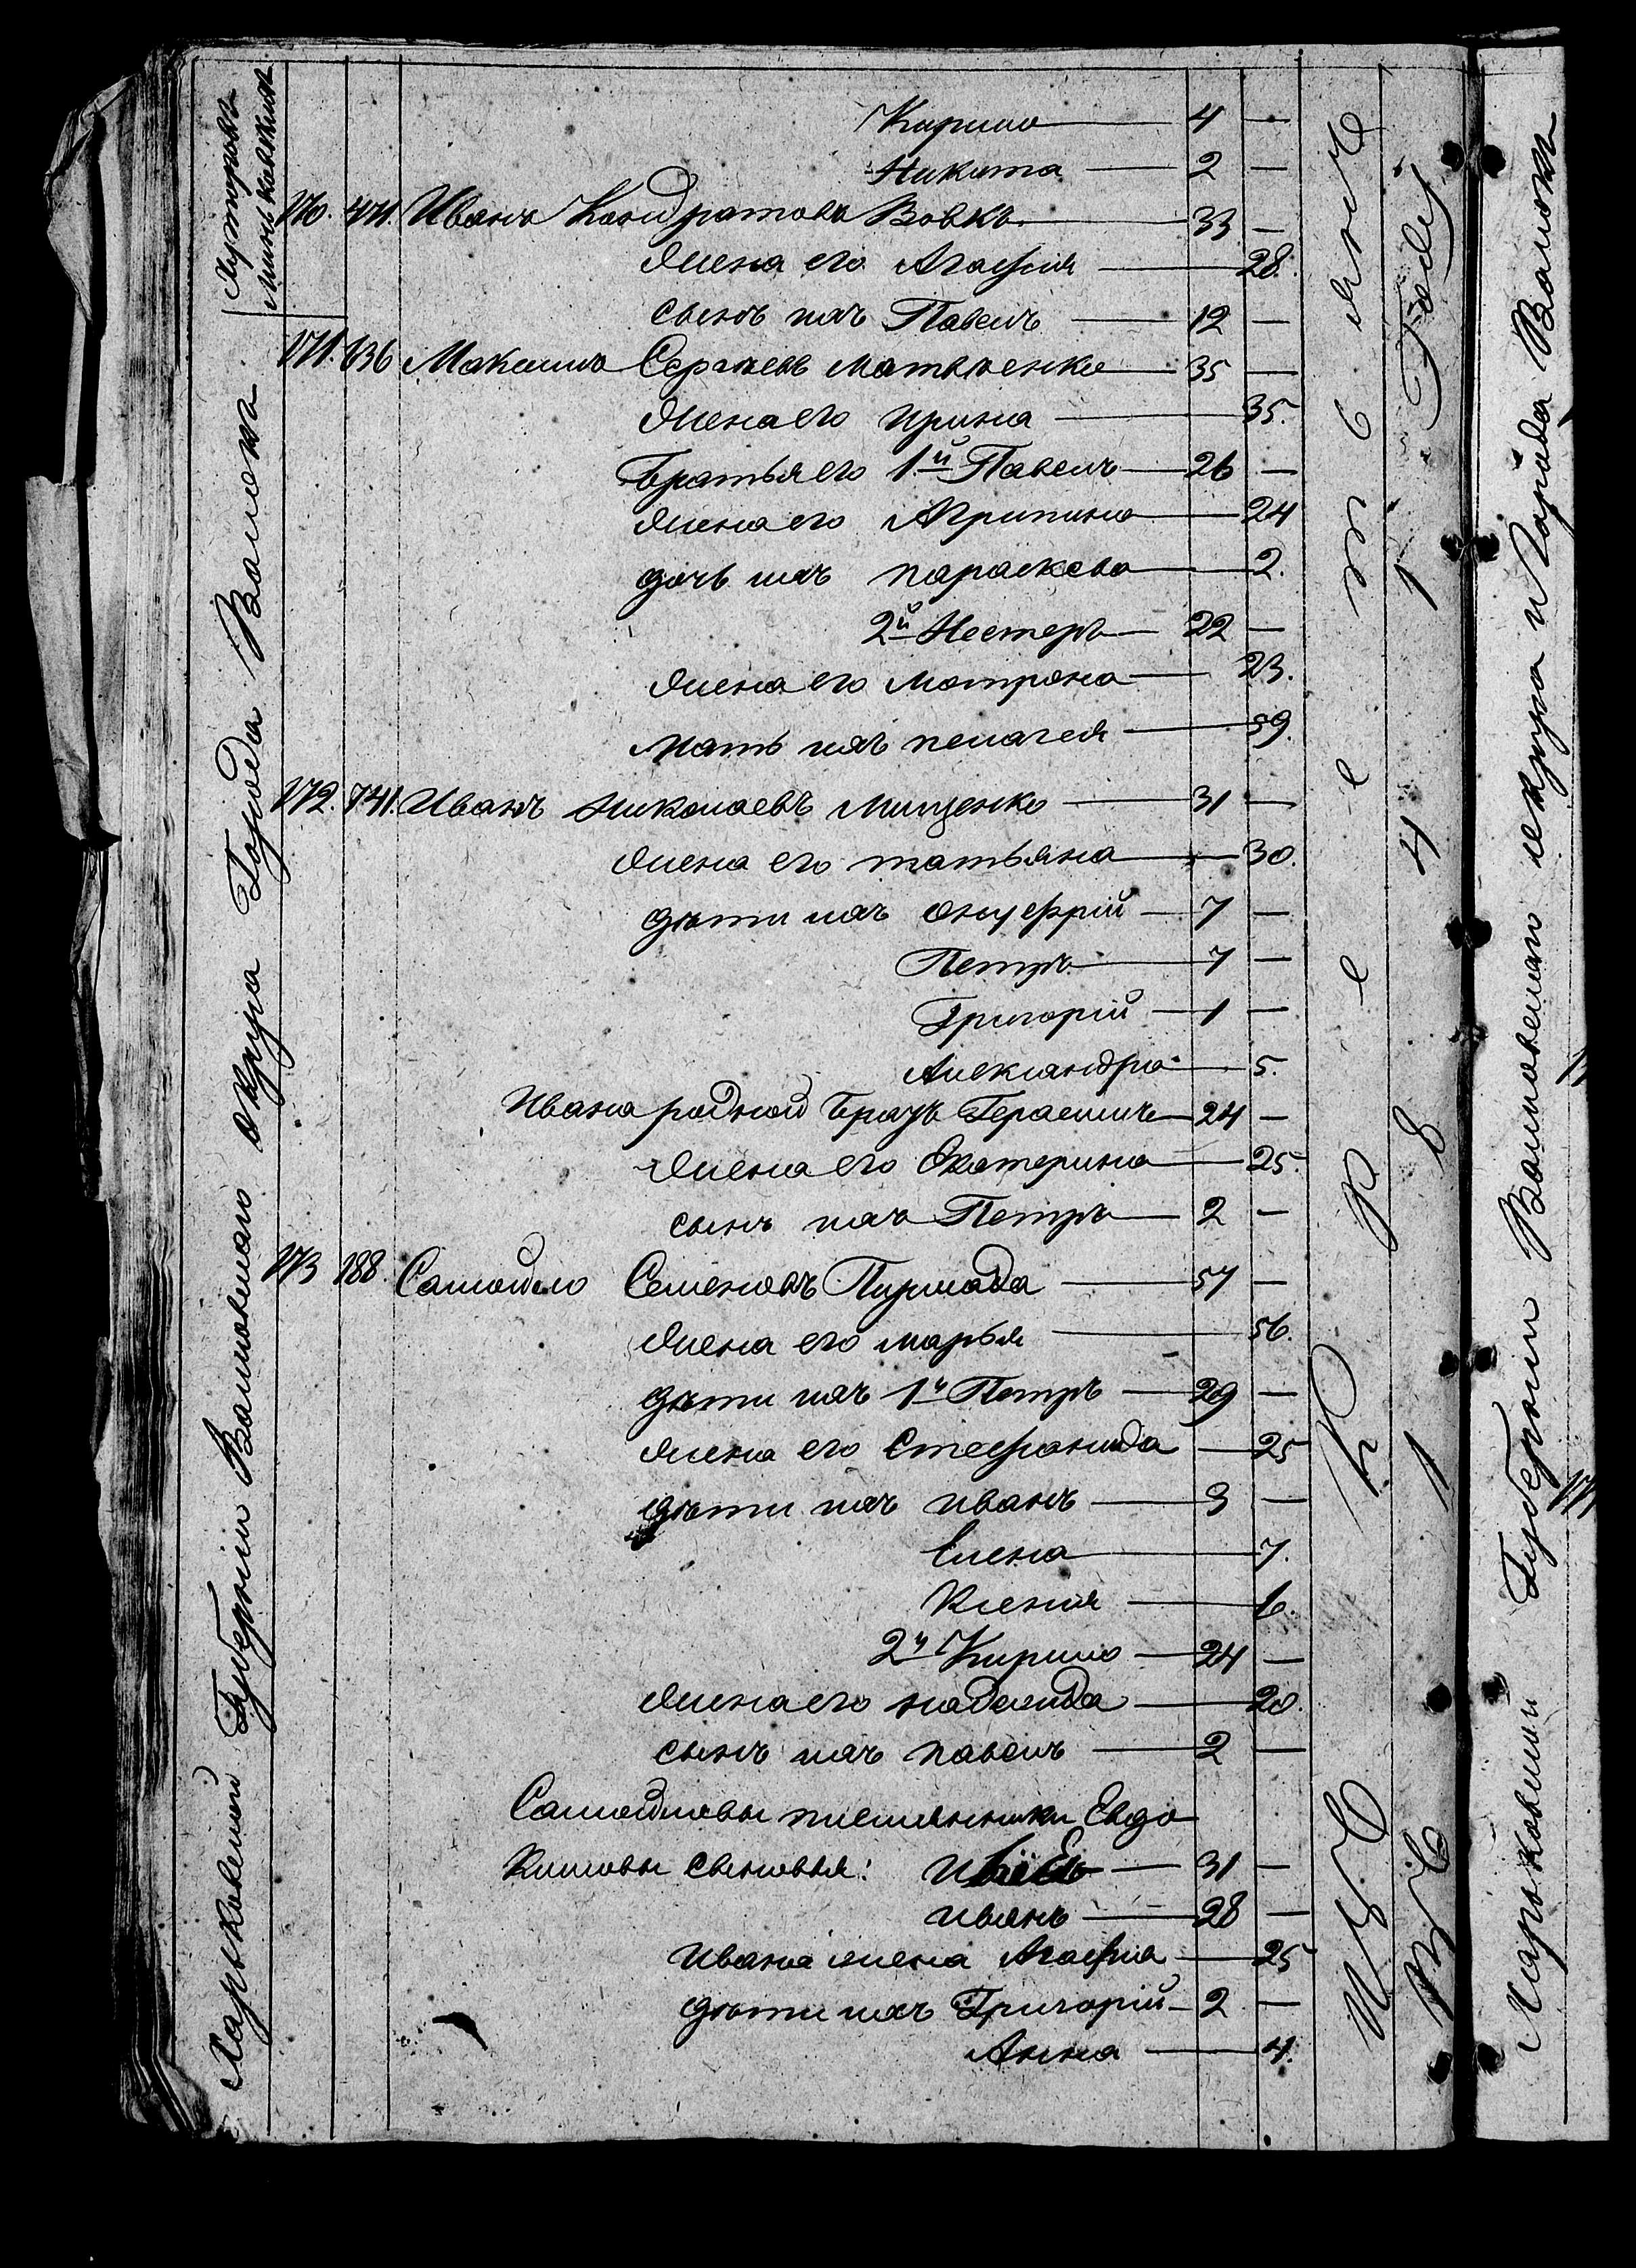 Кирило 4 —
Никита — 2 —
170. 471. Иванъ Кондратовъ Вовкъ — 33 —
жена его Агафия — 28.
сынъ ихъ Павелъ — 12 —
171. 636 Максимъ Сергѣевъ Матвѣенко — 35 —
жена его ирина — 35.
братья его 1й Павелъ — 26 —
жена его Агрипина — 24
дочь ихъ параскева — 2.
2й Нестеръ — 22 —
жена его мотрона — 23.
мать ихъ пелагея — 59.
172. 741. Иванъ Николаевъ Мищенко — 31 —
жена его татьяна — 30.
дѣти ихъ онуфрій — 7 —
Петръ — 7 —
Григорій — 1 —
Александра — 5.
Ивана родной братъ Герасимъ — 24 —
жена его Екатерина — 25.
сынъ ихъ Петръ — 2 —
173 188. Самойло Семеновъ — 57 —
жена его марья — 56.
дѣти ихъ 1й Петръ — 29 —
жена его Стефанида — 25
дѣти ихъ иванъ — 3 —
Елена — 7.
Ксения — 6.
2й Кирило — 24 —
жена его надежда — 20.
сынъ ихъ павелъ — 2 —
Самойловы племянники Евдо
кимовы сыновья: — 31 —
иванъ — 28 —
Ивана жена Агафия — 25
дѣти ихъ Григорій — 2 —
Анна — 4.
Харьковской Губерніи Валковскаго округа Города Валокъ
Хуторовъ
1 8 4 1 Году
Харьковской Губерніи Валковскаго округа и Города Валокъ